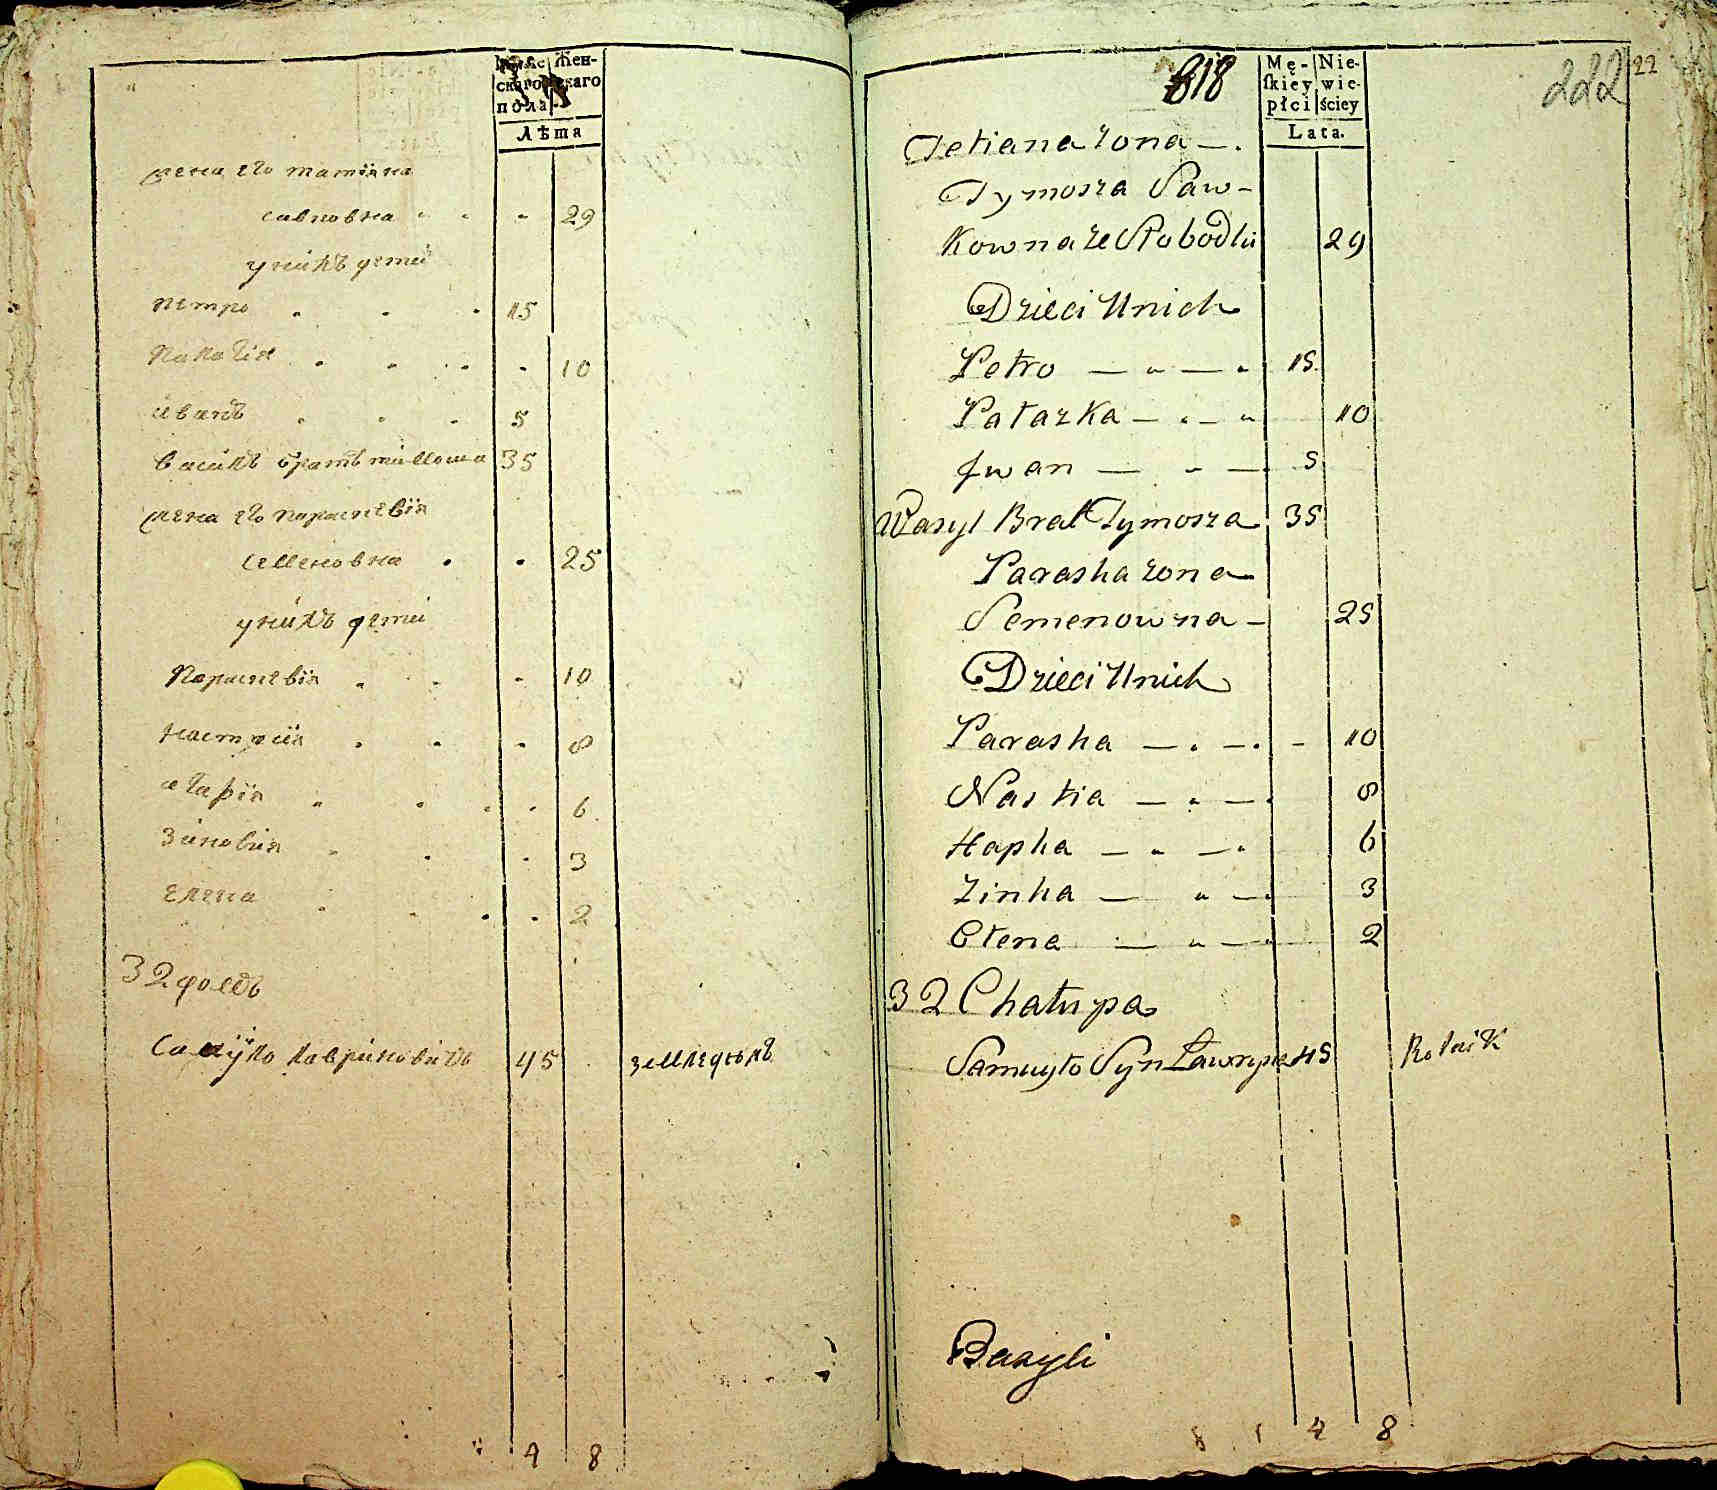 Мужескаго пола
Женскаго
Лѣта
жена его татіяна
савковна 29
уникъ дети
петро 15
палагія 10
иванъ 5
василь братъ тимоша 35
жена его параскевія
семеновна 25
уникъ дети
параскевія 10
настасія 8
агафія 6
зиновия 3
елена 2
32 домъ
Самуйло лавриновичъ 45 земледелъ
4 8
818
222
22
Męskiey płci
Niewieściey
Lata.
Tetiana żona
Tymosza Saw-
kowna ze Słobodki 29
Dzieci Unich
Petro 15
Pałazka 10
Jwan 5
Wasyl Brat Tymosza 35
Paraska żona
Semenowna 25
Dzieci Unich
Paraska 10
Nastia 8
Hapka 6
Zinka 3
Ołena 2
32 Chałupa
Samuyło Syn Ławryna 45 Rolnik
Bazyli
4 8